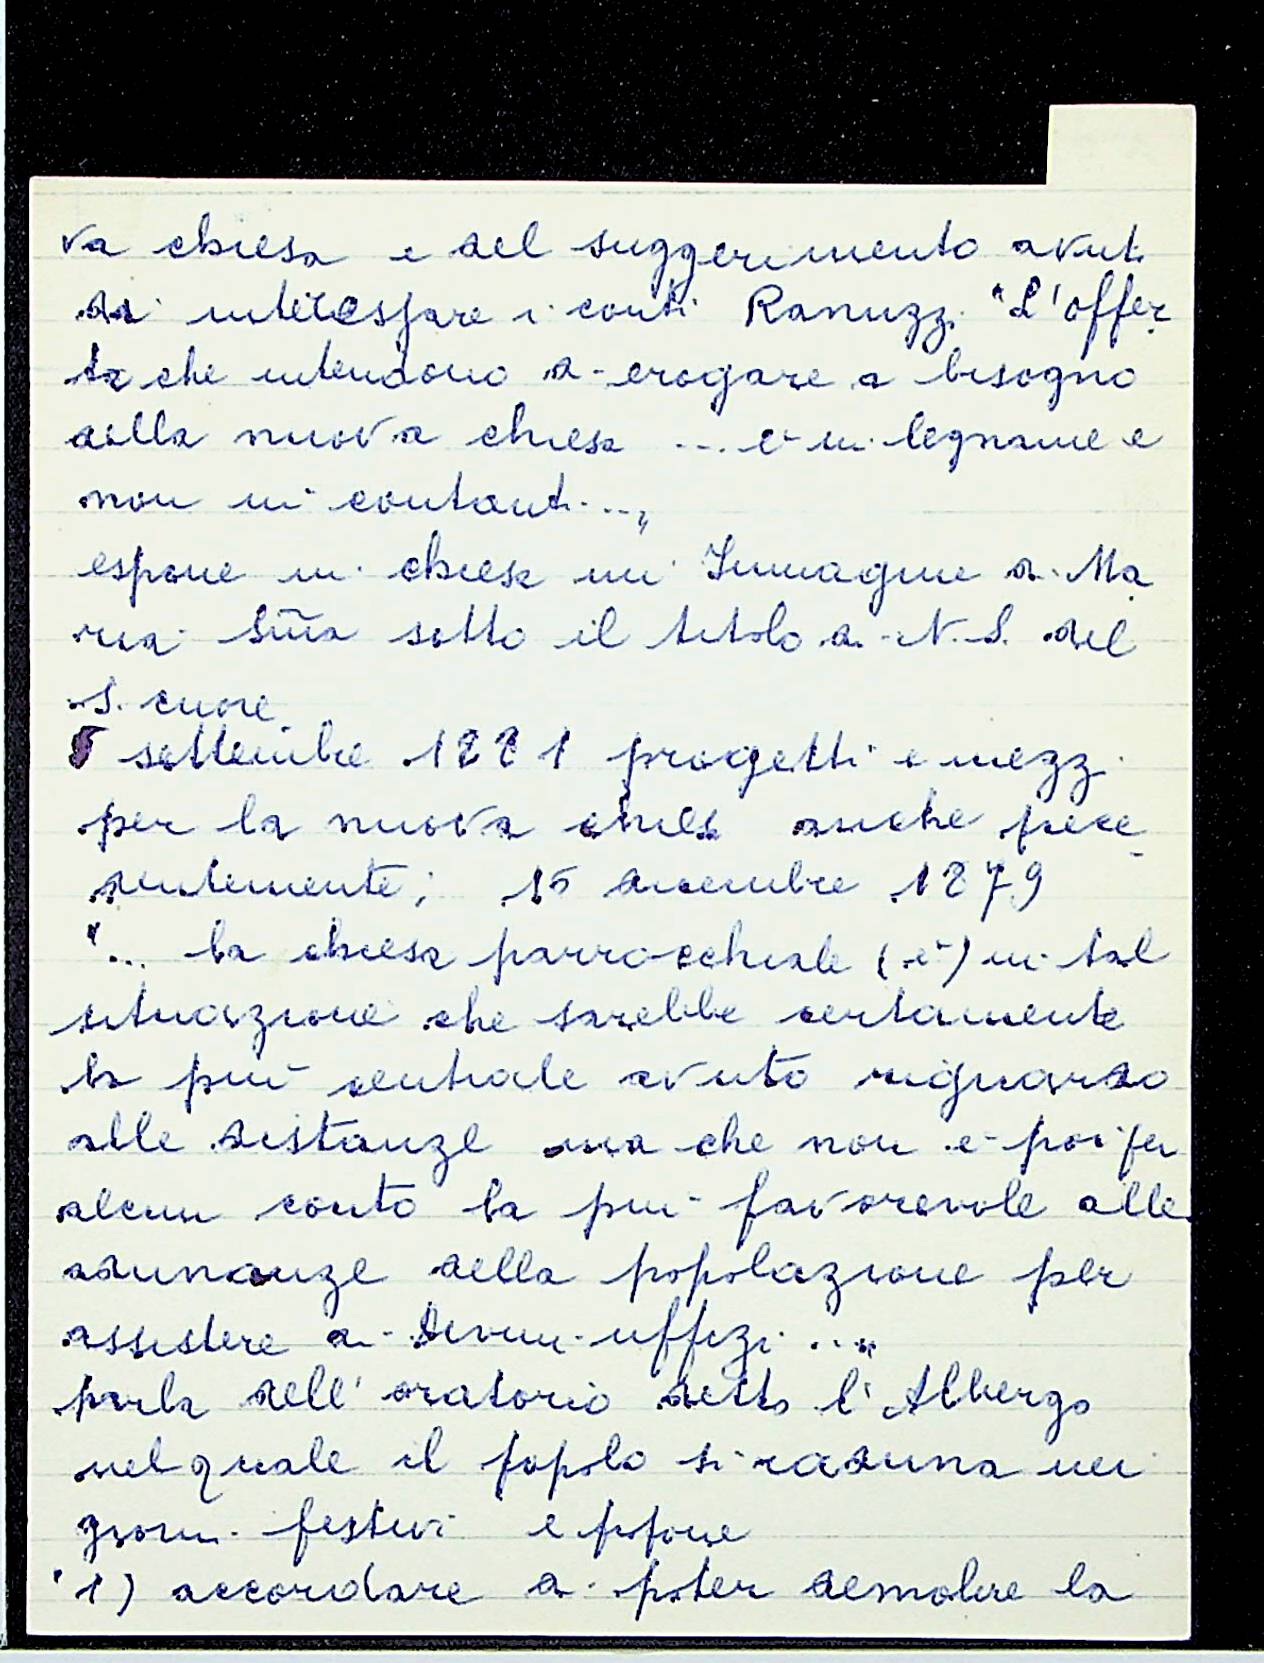 va chiesa e del suggerimento avut.
di interessare i conti Ranuzzi "L'offer
ta che intendono di erogare a bisogno
della nuova chiesa ... è in legname e
non in contanti..."
espone in chiesa un' Immagine di Ma
ria S̃ma sotto il titolo di N. S. del
S. cuore
settembre 1881 progetti e mezzi
per la nuova chiesa anche prece
dentemente; 15 dicembre 1879
"... la chiesa parrocchiale (è) in tal
situazione che sarebbe certamente
la più centrale avuto riguardo
alle distanze ma che non è poi per
alcun conto la più favorevole alle
adunanze della popolazione per
assistere ai divini uffizi ..."
parla dell' oratorio detto l'Albergo
nel quale il popolo si raduna nei
giorni festivi e propone
"1) accordare di poter demolire la